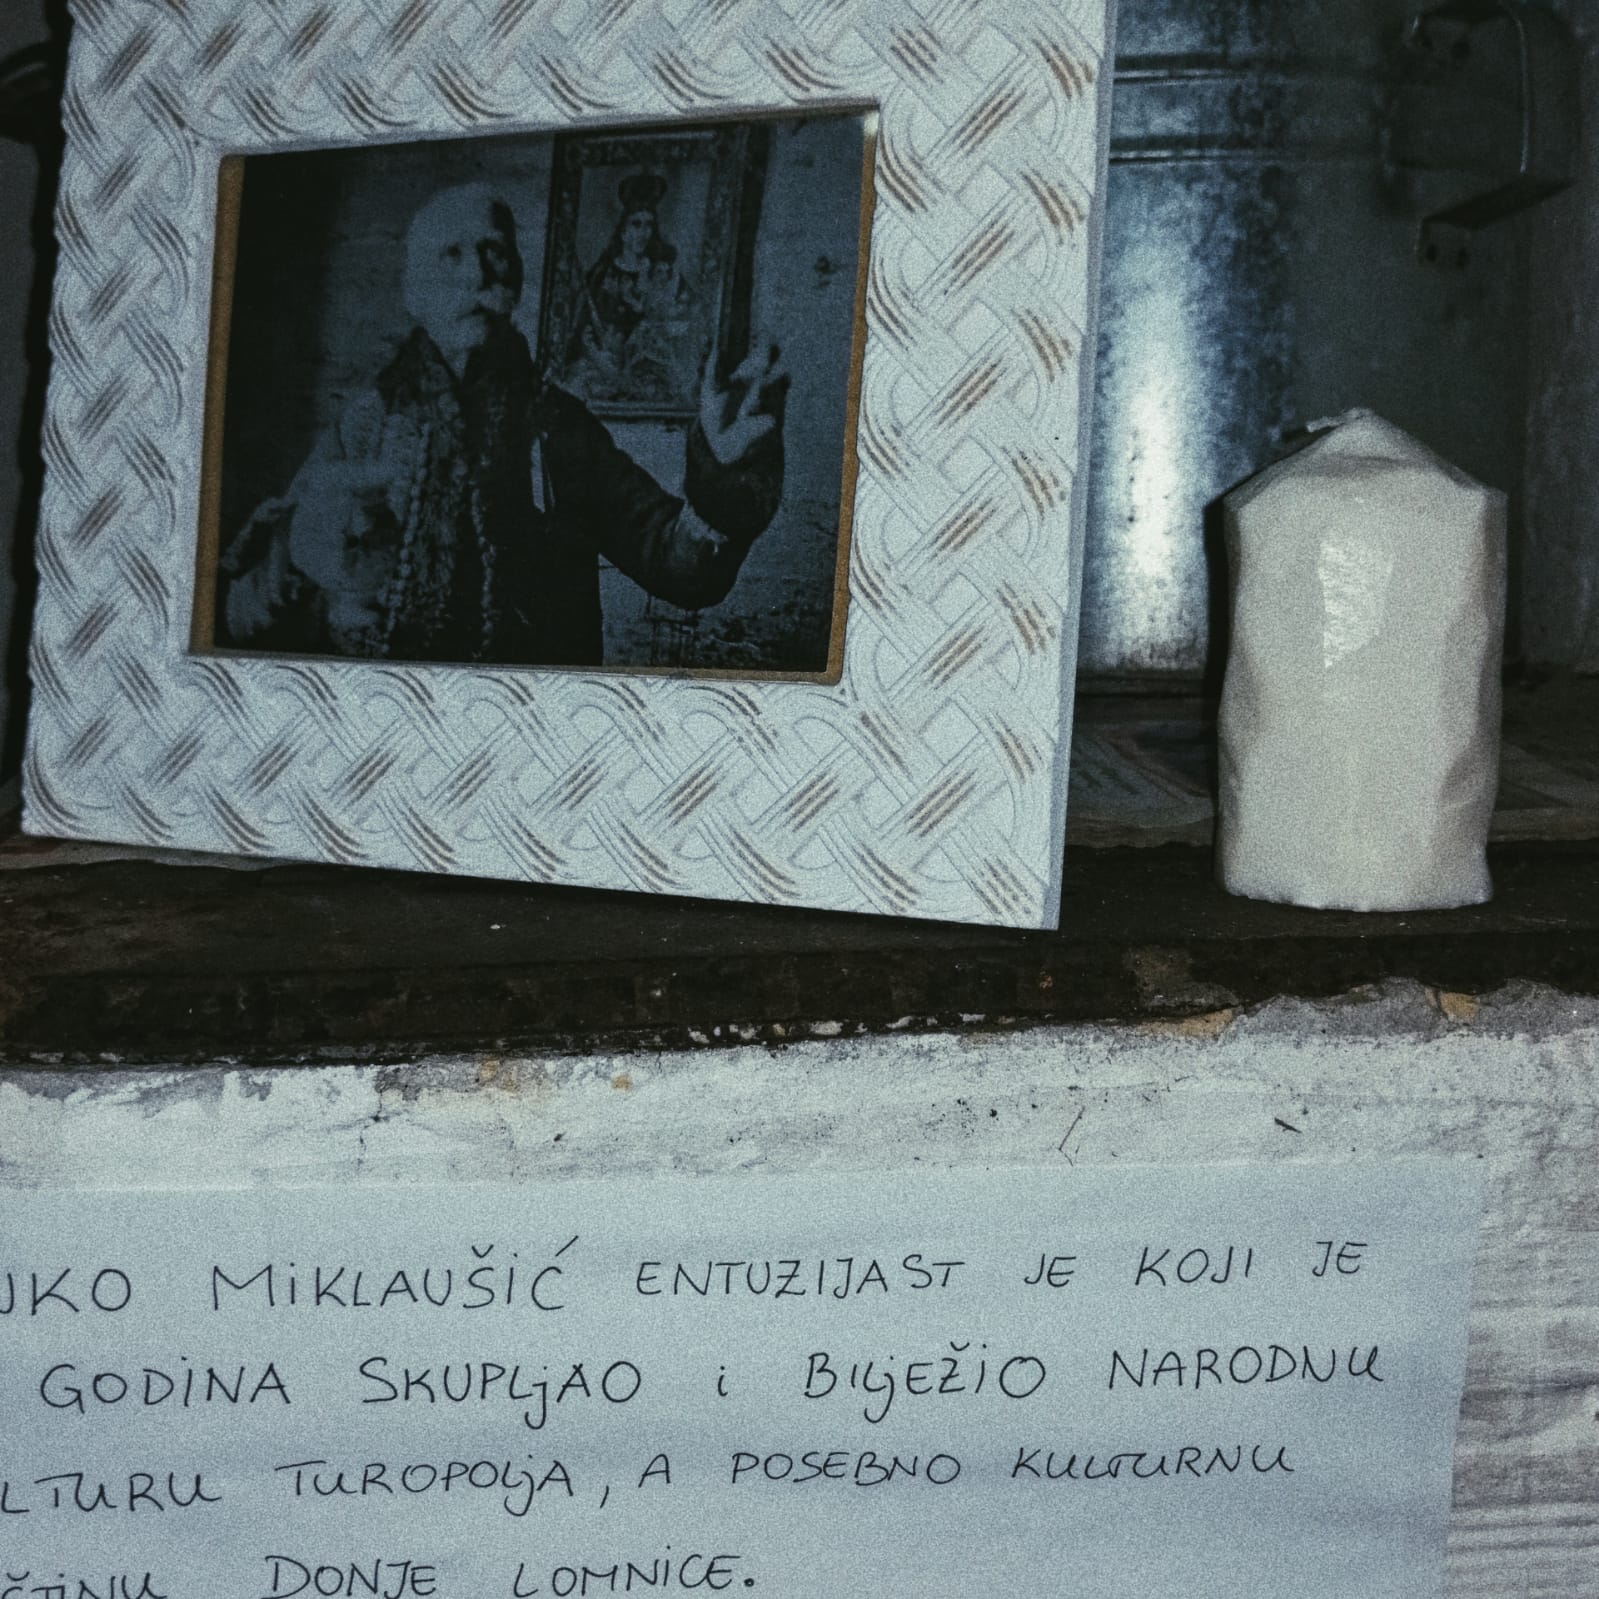 MIKLAUŠIĆ ENTUZIJAST JE KOJI JE
GODINA SKUPLJAO i BILJEŽIO NARODNU
TUROPOLJA, A POSEBNO KULTURNU
DONJE LOMNICE.